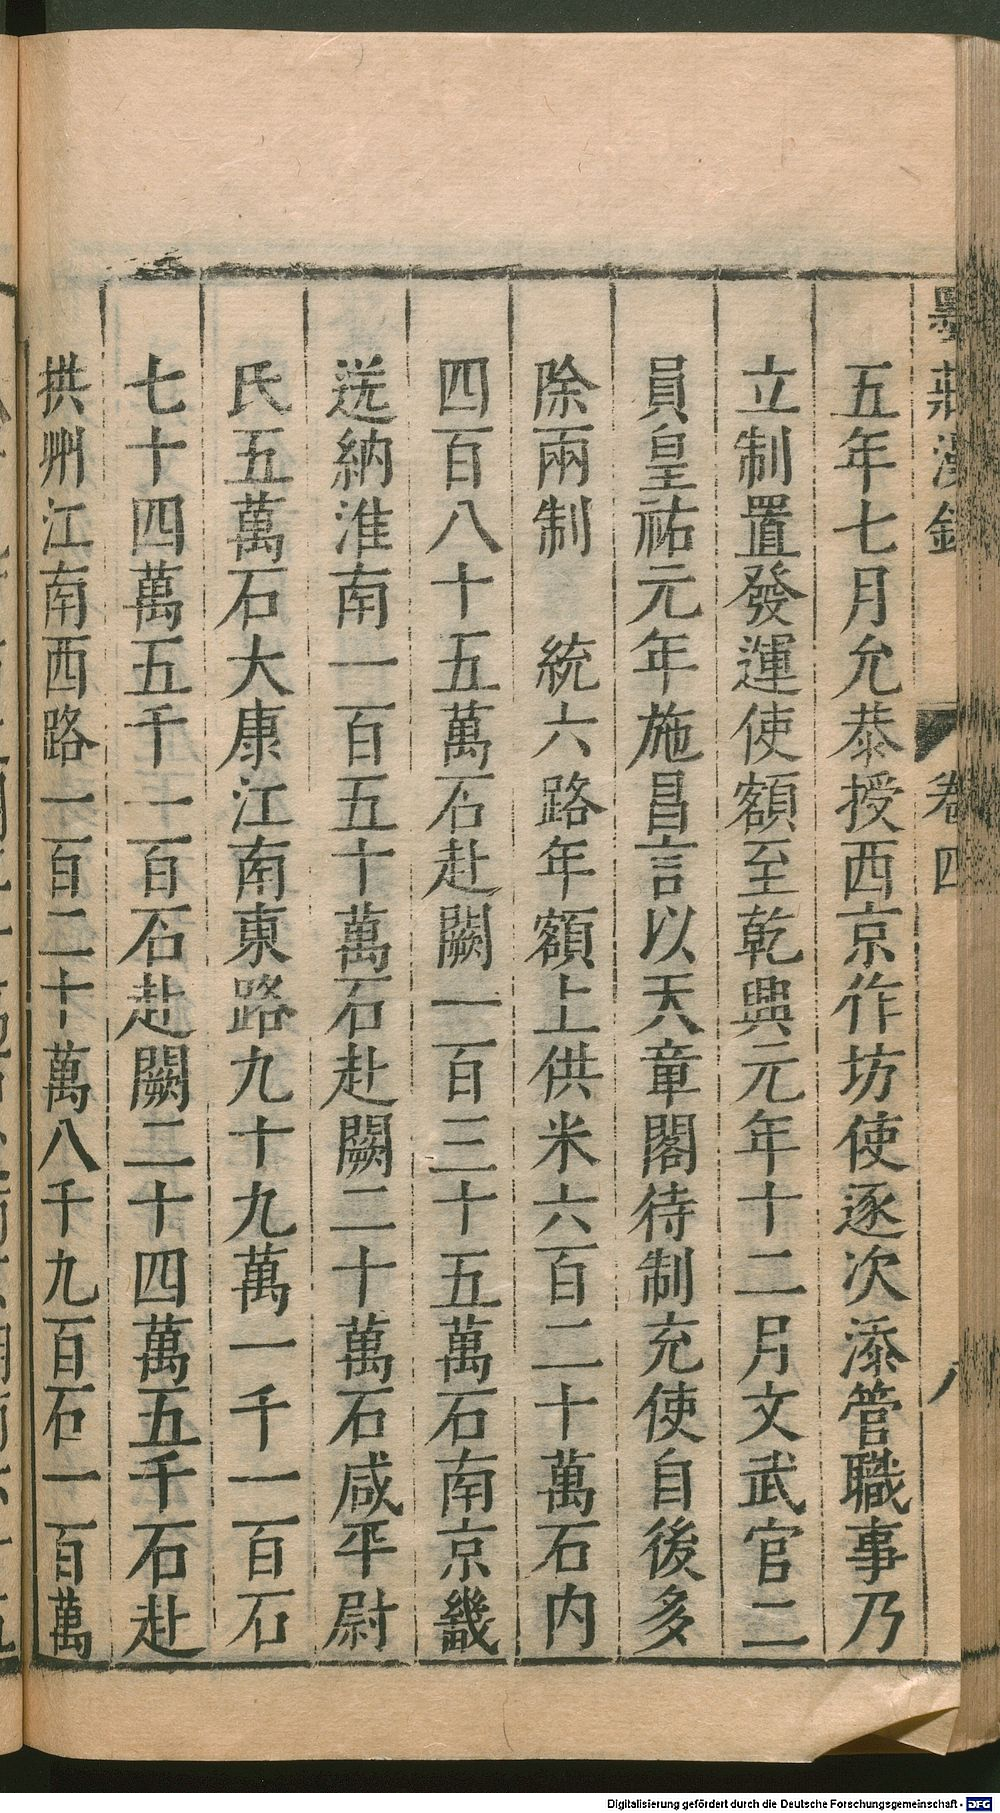 墨莊漫錄 卷四 八
五年七月允恭授西京作坊使逐次添管職事乃
立制置發運使額至乾興元年十二月文武官二
員皇祐元年施昌言以天章閣待制充使自後多
除兩制 統六路年額上供米六百二十萬石内
四百八十五萬石赴闕一百三十五萬石南京畿
送納淮南一百五十萬石赴闕二十萬石咸平尉
氏五萬石大康江南東路九十九萬一千一百石
七十四萬五千一百石赴闕二十四萬五千石赴
拱州江南西路一百二十萬八千九百石一百萬
Digitalisierung gefördert durch die Deutsche Forschungsgemeinschaft - DFG